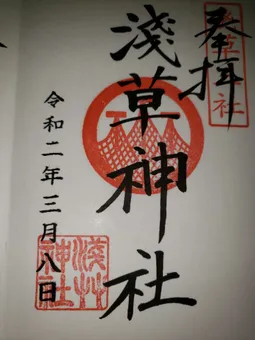 奉拝
浅草社
淺草神社
令和二年三月八日
淺草神社